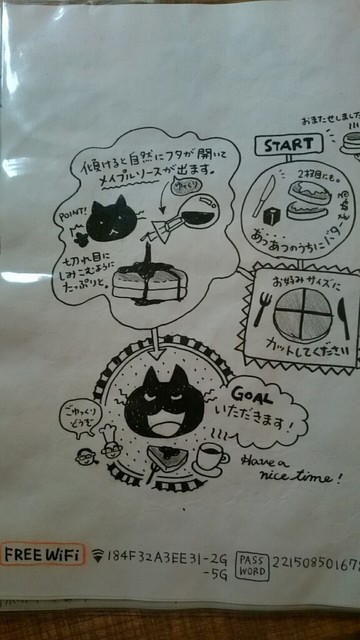 おまたせしました
START
2枚目にも。
あつあつのうちにバター
お好みサイズに
カットしてください
傾けると自然にフタが開いて
メイプルソースが出ます。
ゆっくり
POINT!
切れ目に
しみこむように
たっぷりと。
GOAL
いただきます!
ごゆっくり
どうぞ
Have a
nice time!
FREE WiFi
184F32A3EE31-2G
-5G
PASS
WORD
221508501678